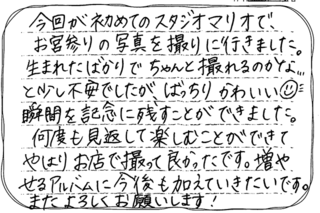 今回が初めてのスタジオマリオで、
お宮参りの写真を撮りに行きました。
生まれたばかりでちゃんと撮れるのかな…
と少し不安でしたが、ばっちりかわいい☺
瞬間を記念に残すことができました。
何度も見返して楽しむことができて
やはりお店で撮って良かったです。増や
せるアルバムに今後も加えていきたいです。
またよろしくお願いします！